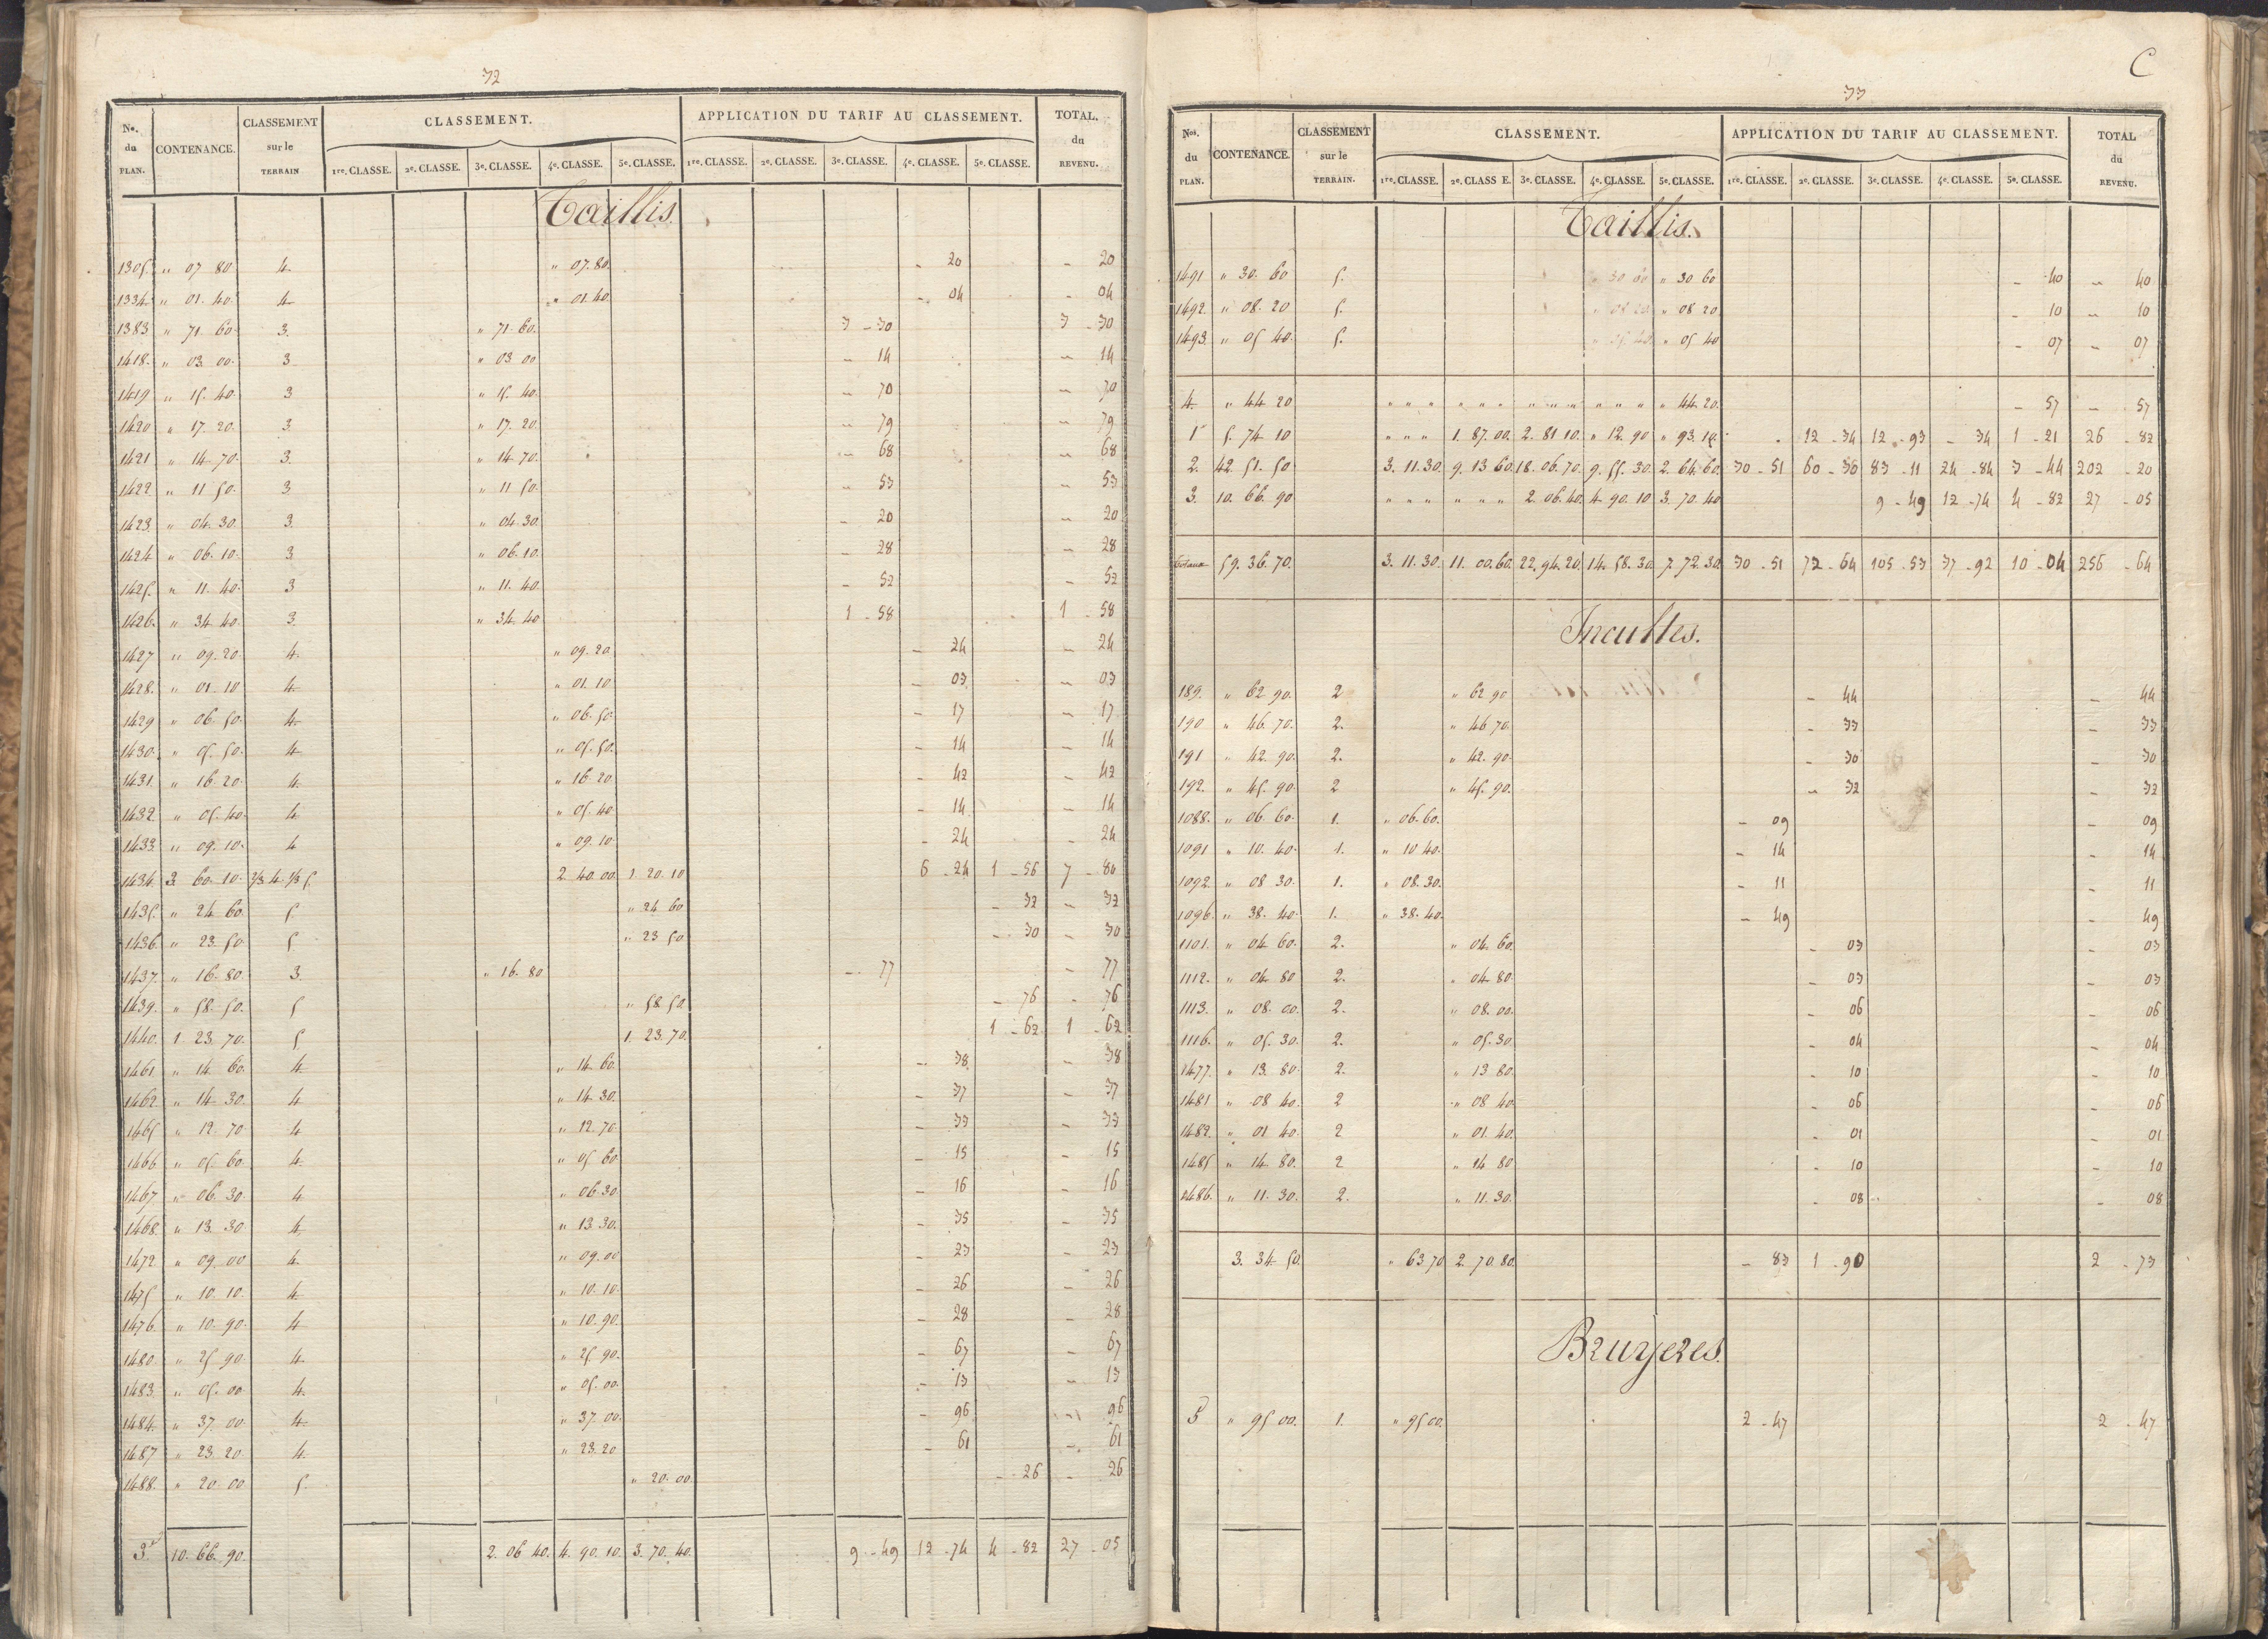 32
No. du PLAN. CONTENANCE. CLASSEMENT sur le TERRAIN CLASSEMENT. APPLICATION DU TARIF AU CLASSEMENT. TOTAL. du REVENU.
1re. CLASSE. 2e. CLASSE. 3e. CLASSE. 4e. CLASSE. 5e. CLASSE. 1re. CLASSE. 2e. CLASSE. 3e. CLASSE. 4e. CLASSE. 5e. CLASSE.
Taillis.
1305. " 07 80. 4. " 07. 80. - 20 - 20
1334. " 01. 40. 4 " 01. 40. - 04 - 04
1383 " 71. 60. 3. " 71. 60. 3 - 30 3 - 30
1418. " 03. 00. 3 " 03 00 - 14 - 14
1419 " 15. 40. 3 " 15. 40. - 70 - 70
1420 " 17. 20. 3. " 17. 20. - 79 - 79
1421 " 14 70. 3. " 14 70. - 68 - 68
1422 " 11 50. 3 " 11 50. - 53 - 53
1423. " 04. 30. 3. " 04. 30. - 20 - 20
1424 " 06. 10. 3 " 06. 10. - 28 - 28
1425. " 11. 40. 3 " 11. 40. - 52 - 52
1426. " 34 40. 3 " 34. 40 1 - 58 1 - 58
1427 " 09. 20. 4. " 09. 20. - 24 - 24
1428. " 01. 10 4 " 01. 10 - 03 - 03
1429 " 06. 50. 4. " 06. 50. - 17 - 17
1430. " 05. 50. 4 " 05. 50. - 14 - 14
1431. " 16. 20. 4. " 16. 20. - 42 - 42
1432 " 05. 40. 4 " 05. 40. - 14 - 14
1433. " 09. 10. 4 " 09. 10. - 24 - 24
1434. 3 60. 10. 2/3 4. 1/3 5. 2. 40. 00. 1. 20. 10 6 - 24 1 - 56 7 - 80
1435. " 24 60. 5 " 24 60 - 32 - 32
1436. " 23. 50. 5 " 23 50. - 30 - 30
1437. " 16. 80. 3. " 16. 80 - 77 - 77
1439. " 58. 50. 5 " 58 50. - 76 - 76
1440. 1. 23. 70. 5 1. 23. 70. 1 - 62 1 - 62
1461 " 14 60. 4 " 14. 60. - 38 - 38
1462. " 14 30. 4 " 14 30. - 37 - 37
1465 " 12. 70 4 " 12. 70. - 33 - 33
1466 " 05. 60. 4. " 05. 60. - 15 - 15
1467 " 06. 30 4 " 06. 30. - 16 - 16
1468. " 13. 30. 4. " 13. 30. - 35 - 35
1472 " 09. 00 4. " 09. 00 - 23 - 23
1475 " 10. 10. 4. " 10. 10. - 26 - 26
1476. " 10. 90. 4 " 10. 90. - 28 - 28
1480. " 25 90. 4. " 25. 90. - 67 - 67
1483. " 05. 00 4. " 05. 00. - 13 - 13
1484. " 37. 00. 4. " 37. 00. - 96 - 96
1487 " 23. 20. 4. " 23. 20 - 61 - 61
1488. " 20. 00 5. " 20. 00. - 26 - 26
3. 10. 66. 90. 2. 06 40. 4. 90. 10. 3. 70. 40. 9 - 49 12 - 74 4 - 82 27 - 05
C
33
Nos. du PLAN. CONTENANCE. CLASSEMENT sur le TERRAIN. CLASSEMENT. APPLICATION DU TARIF AU CLASSEMENT. TOTAL du REVENU.
1re. CLASSE. 2e. CLASS E. 3e. CLASSE. 4e. CLASSE. 5e. CLASSE. 1re. CLASSE. 2e. CLASSE. 3e. CLASSE. 4e. CLASSE. 5e. CLASSE.
Taillis.
1491 " 30. 60 5. " 30 60 - 40 - 40
1492. " 08. 20 5. " 08 20. - 10 - 10
1493. " 05 40. 5. " 05 40 - 07 - 07
4. " 44 20 " " " " " " " " " " " " " 44 20. - 57 - 57
1 5. 74 10 " " " 1. 87. 00. 2. 81 10. " 12. 90 " 93. 10. 12 - 34 12 - 93 - 34 1 - 21 26 - 82
2. 42 51. 50 3. 11. 30. 9. 13 60. 18. 06. 70. 9. 55. 30. 2. 64. 60. 30 - 51 60 - 30 83 - 11 24 - 84 3 - 44 202 - 20
3. 10. 66. 90 " " " " " " 2. 06. 40. 4. 90. 10 3. 70. 40 9 - 49 12 - 74 4 - 82 27 - 05
Totaux 59. 36. 70. 3. 11. 30. 11. 00. 60. 22. 94. 20. 14. 58. 30. 7. 72. 30. 30 - 51 72 - 64 105 - 53 37 - 92 10 - 04 256 - 64
Incultes.
189. " 62 90. 2 " 62 90 - 44 - 44
190 " 46. 70. 2. " 46 70. - 33 - 33
191 " 42. 90. 2. " 42. 90. - 30 - 30
192. " 45. 90. 2 " 45. 90. - 32 - 32
1088. " 06. 60. 1. " 06. 60. - 09 - 09
1091 " 10. 40. 1. " 10 40. - 14 - 14
1092. " 08 30. 1. " 08. 30. - 11 - 11
1096. " 38. 40. 1. " 38. 40. - 49 - 49
1101. " 04. 60. 2. " 04. 60. - 03 - 03
1112. " 04. 80 2. " 04. 80 - 03 - 03
1113. " 08. 00. 2. " 08. 00. - 06 - 06
1116. " 05. 30. 2. " 05. 30. - 04 - 04
1477. " 13. 80. 2. " 13 80. - 10 - 10
1481 " 08 40. 2 " 08 40. - 06 - 06
1482. " 01. 40. 2 " 01. 40. - 01 - 01
1485 " 14 80. 2 " 14 80. - 10 - 10
1486. " 11. 30. 2. " 11. 30. - 08 - 08
3. 34 50. " 63 70 2. 70. 80. - 83 1 - 90 2 - 73
Bruyeres.
5 " 95 00. 1. " 95 00. 2 - 47 2 - 47